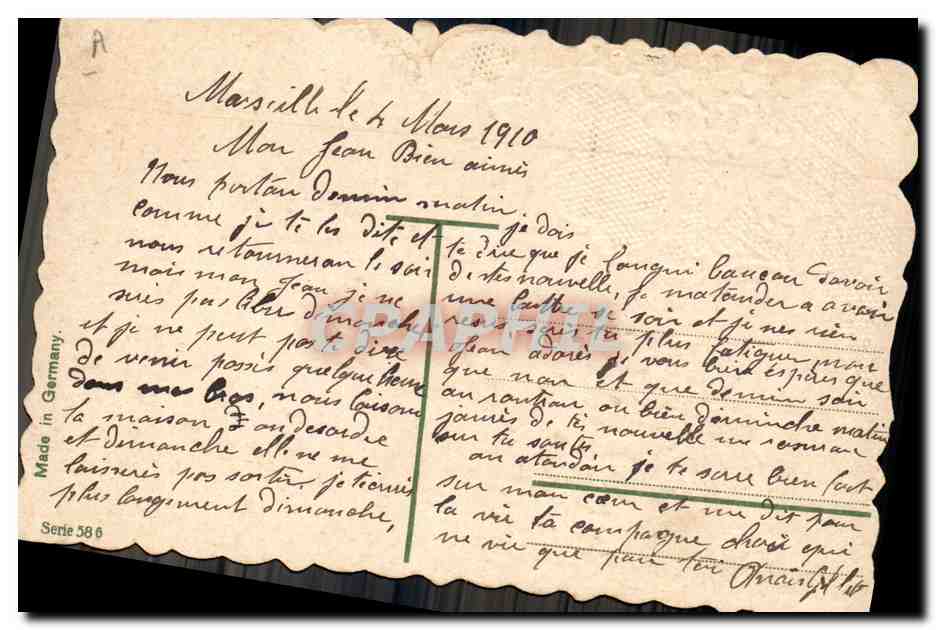 A
Marseille le 4 Mars 1910
Mon Jean Bien aimés
Nous portan demin matin.
comme je te les dite et
nous retourneran le soir
mais mon Jean je ne
serès pas libre dimanche
et je ne peut pas te dire
de venir possés quelque heure
dans mes bras, nous laisson
la maison an desordre
et demanche elle ne me
laisserès pas sortir, je t'ecrirès
plus longement dimanche,
je dois
te dire que je langui baucau d'avoir
destes nouvelle, je m'atander a avoir
une lettre se soir et je nes rien
resus serès tu plus fatiguer mon
Jean adorés je vous bien espères que
que non et que demin soir
au routran ou bien deminche matin
jaurès de tes nouvelle me rasuran
sur ta santés
an atandan je te sare bien fort
sur mon cœur et me dit pour
la vie ta compagne cherie qui
ne vie que pour toi Anais
Made in Germany.
Serie 586
CPAPHIL